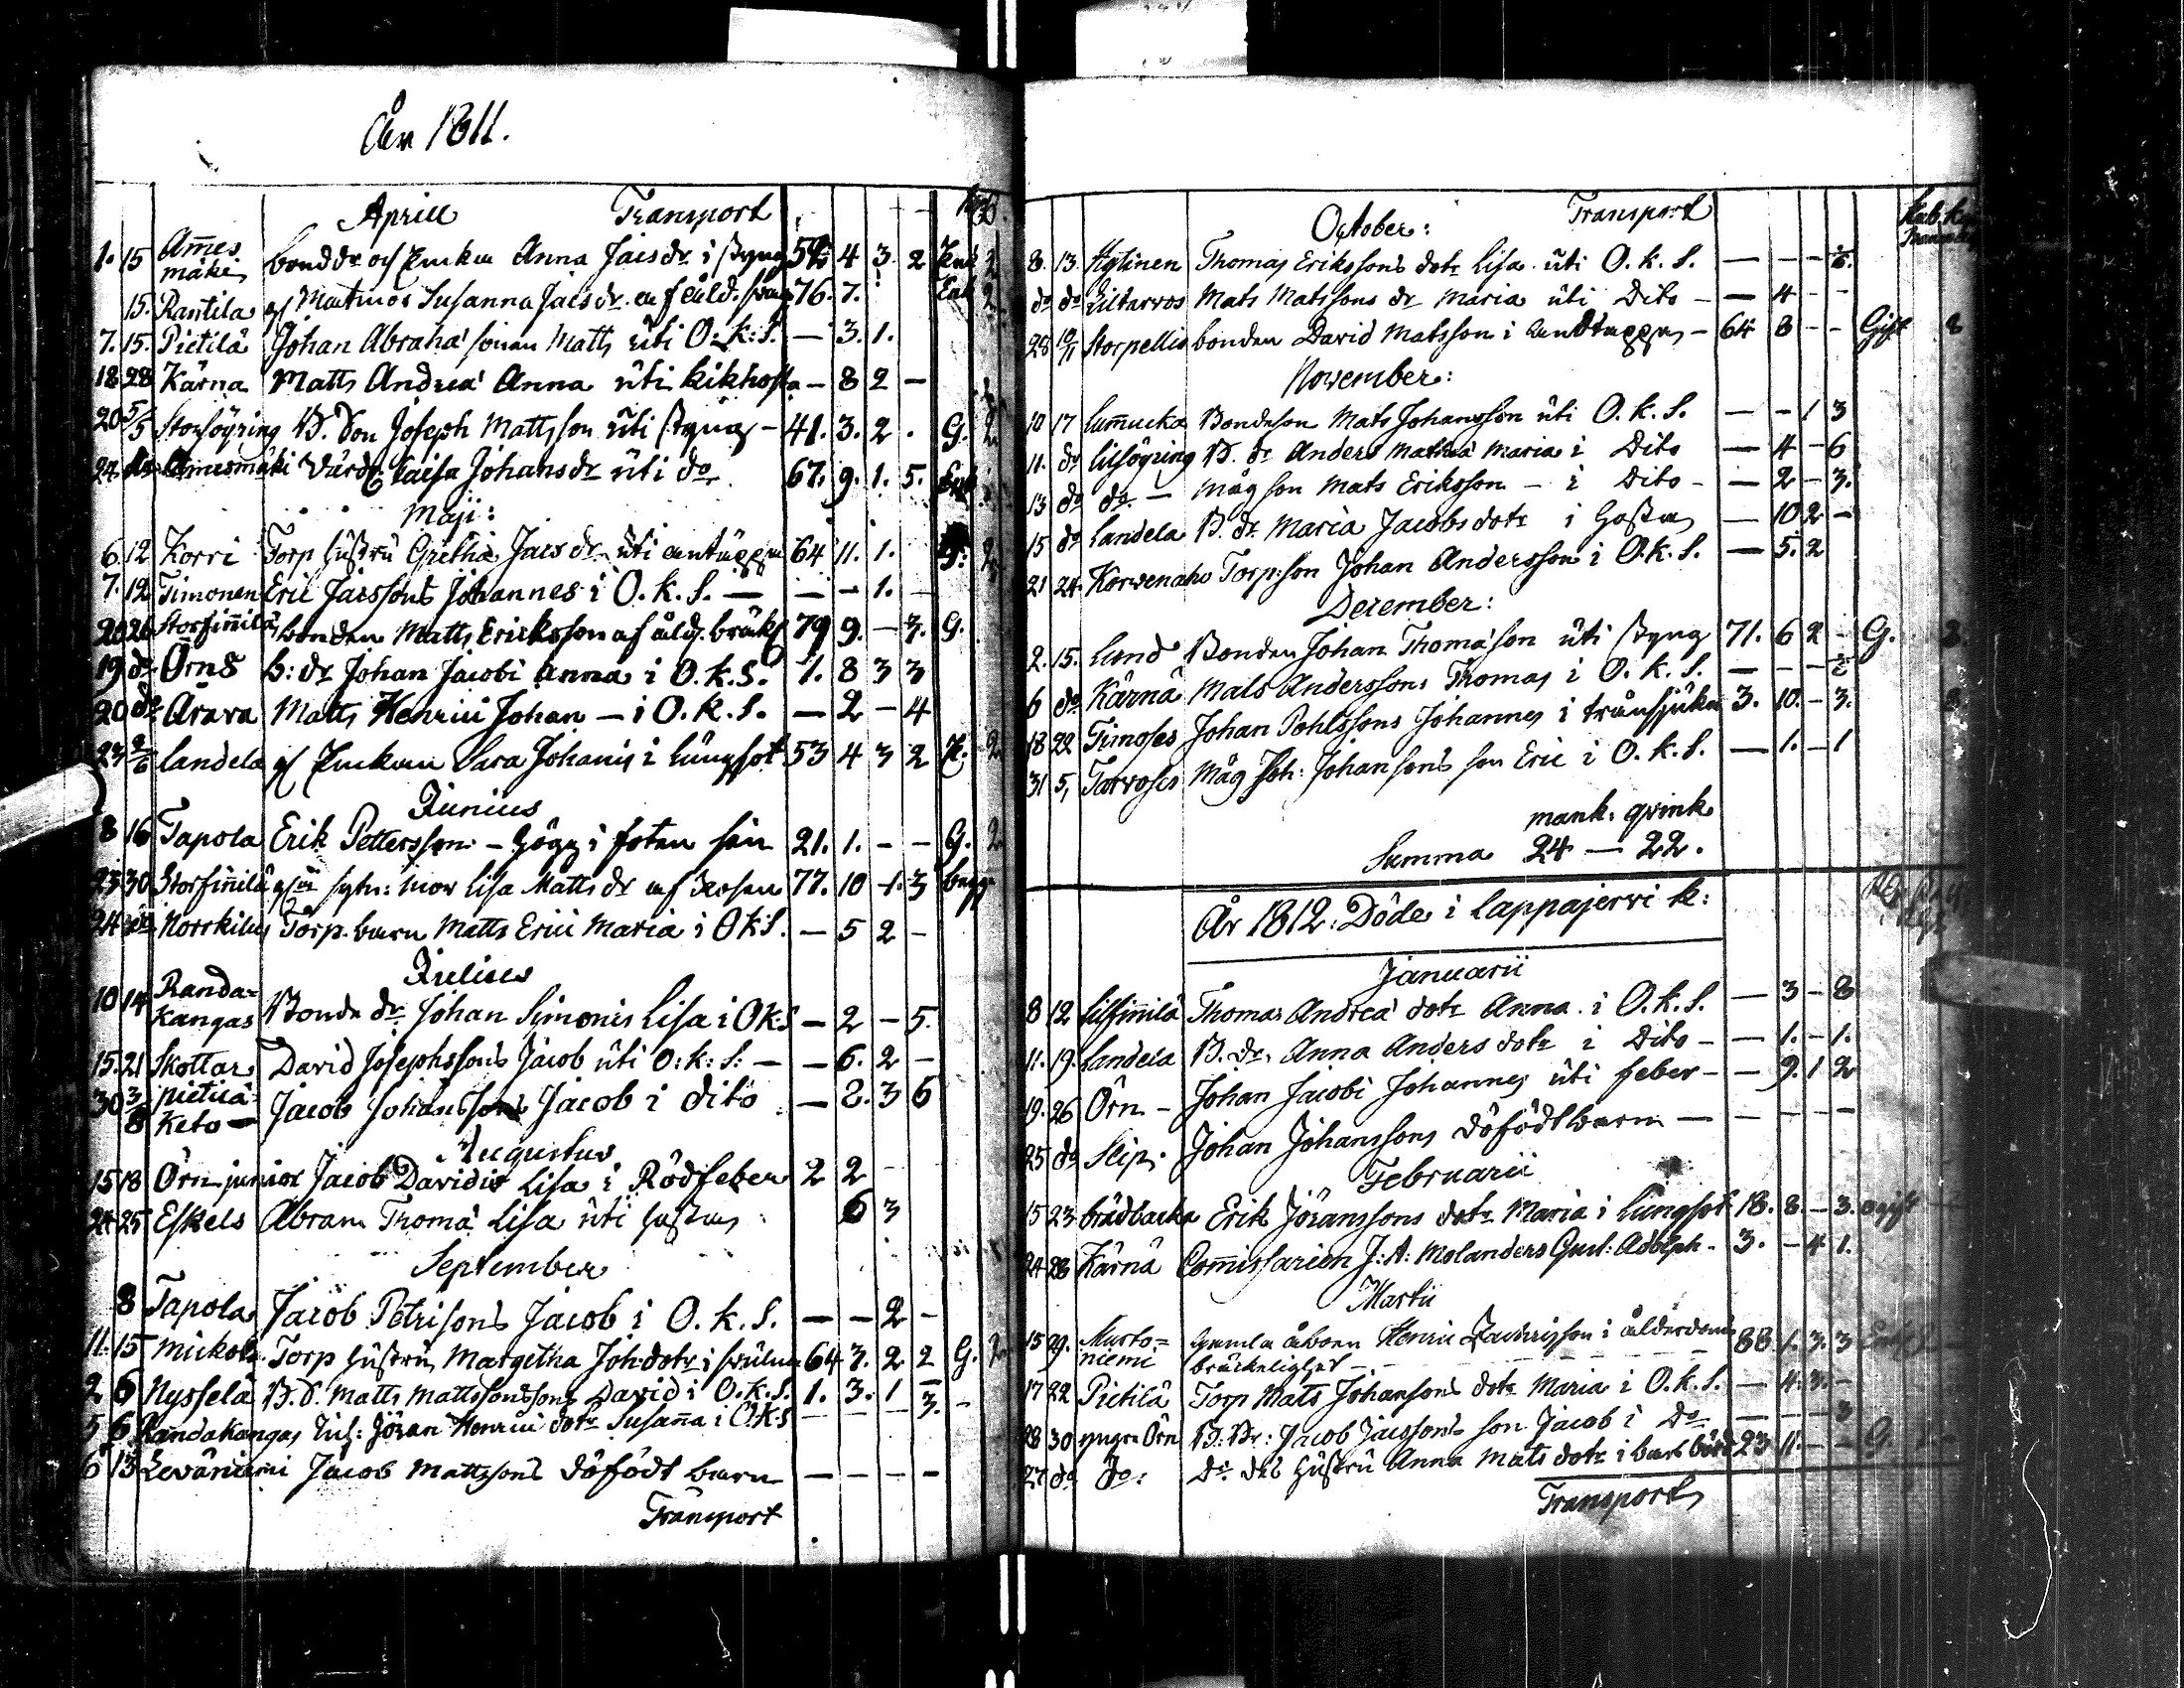 År 1811.
Aprill Transport
1. 15 Ames mäki bonddr och Enkan Anna Jacsdr i styng 54 4 3. 2 Enk 2
15. Rantila gl Matmor Susanna Jacsdr af åld. 76. 7. Enk 2
7. 15. Pietilä Johan Abraha sonen Matts uti O: k: S. — 3. 1.
18 28 Kärna Matts Andreæ Anna uti kikhosta — 8 2 —
20 5/5 Storsöyring B. Son Joseph Mattsson uti styng — 41. 3. 2. G. 2
24. do Amesmäki Caisa Johansdr uti do 67. 9. 1. 5. Enk
Maji:
6 12 Korri Torp hustru Gretha Jacsdr uti 64 11. 1. G. 2
7. 12 Timonen Eric Jacssons Johannes i O. k. S. — — — 1. —
20 26 Storfinnilä bonden Matts Ericksson af åld. bräkl 79 9. — 3. G.
19 do Örns b: dr Johan Jacobi Anna i O. k. S. 1. 8 3 3
20 do Arara Matts Henrici Johan — i O. k. S. — 2 — 4
23 2/6 Landela gl Enkan Sara Johanis i Lungsot 53 4 3 2 E. 2
Junius
8 16 Tapola Erik Pettersson — högg i foten sin 21. 1. — — G. 2
23 30 Storfinnilä Lisa Mattsdr af Rosen 77. 10 1. 3
24 do Norrkilus Torp. barn Matts Erici Maria i OkS. — 5 2 —
Julius
10 14 Randa= kangas Bonde dr. Johan Simonis Lisa i OkS — 2 — 5.
15. 21 Skottar David Josephssons Jacob uti O: k: S: — — 6. 2 —
30 3/8 Pietilä= Keto — Jacob Johanssons Jacob i dito — 8. 3 6
Augustus
15 18 Örn junior Jacob Davidis Lisa i Rödfeber 2 2
24 25 Eskels Abram Thomæ Lisa uti hosta 6 3
September
8 Tapola Jacob Petrisons Jacob i O. k. S. — — 2 —
11. 15 Mickols Torp hustru Margetha Joh:dotr i 64 3. 2 2 G. 2
2 6 Nysselä B. S. Matts Mattssons sons David i O. k. S. 1. 3. 1 —
5 6 Randakangas Inh: Jöran Henrici dotr Susanna i OkS — — — 3. —
6 13 Leväniemi Jacob Mattssons döfödt barn — — — —
Transport
October: Transport
8. 13. Hytinen Thomas Erikssons dotr Lisa uti O. k. S. — — — ½.
do do Liltarvos Mats Matssons dr Maria uti Dito — — 4 — —
28 10/11 Storpellis bonden David Matsson i andtäppa — 64 8 — — Gift 2
November:
10 17 Lamucka Bondeson Mats Johansson uti O. k. S. — — 1 3
11. do Lilsöyring B. dr Anders Mathiæ Maria i Dito — 4 — 6
13 do do — måg son Mats Eriksson — i Dito — — 2 — 3.
15 do Landela B. dr. Maria Jacobsdotr i hosta — 10 2 —
21 24. Korvenaho Torp:son Johan Andersson i O. k. S. — 5. 2
December:
2. 15. Lund Bonden Johan Thomæson uti styng 71. 6 2 — G. 2
6 do Kärnä Mats Anderssons Thomas i O. k. S. — — — ½
18 22 Timoses Johan Pohlssons Johannes i trånsjuka 3. 10. — 3.
31 5, Tarvoses Måg Joh: Johansons son Eric i O. k. S. — 1. — 1
mank. qvink
Summa 24 — 22.
År 1812: Döde i Lappajervi k:
Januarii
8 12 Lilfinnilä Thomas Andreæ dotr Anna i O. k. S. — 3 — 8
11. 19. Landela B. dr. Anna Anders dotr i Dito — — 1. — 1.
19. 26 Örn — Johan Jacobi Johannes uti feber — — 9. 1 2
25 do Seip. Johan Johanssons döfödt barn — — — — —
Februarii
15 23 brädbacka Erik Jöranssons dotr Maria i Lungsot 18. 8. — 3. ogift
24 28 Kärnä Commissarien J: A: Molanders Gust: Adolph — 3. — 4 1.
Martii
15 29. Kurto= niemi gamla åboen Henric i ålderdoms bräckelighet — 88 1. 3. 3 Enk
17 22 Pietilä Torp Mats Johansons dotr Maria i O. k. S. — 4. 3. —
28 30 yngre Örn B: Br: Jacob Jacssons son Jacob i Do — — — 3
27 do do: Do des hustru Anna Mats dotr i barnsbörd 23 11. — — G.
Transport